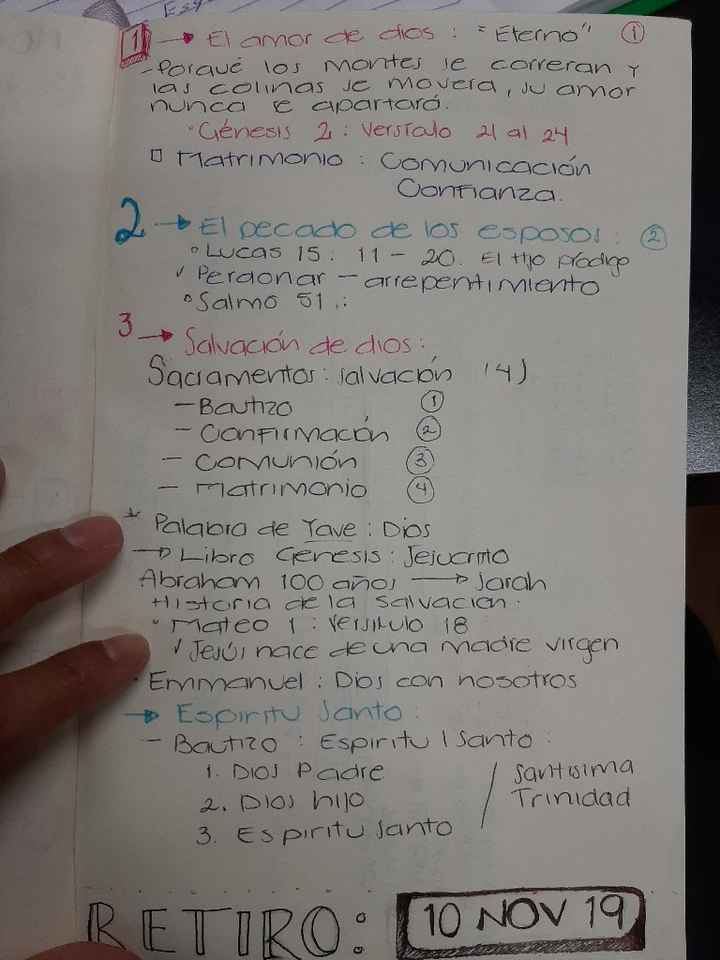 1 → El amor de dios : "Eterno" ①
- Porqué los montes se correran y
las colinas se movera, su amor
nunca se apartará.
• Génesis 2 : Versículo 21 al 24
□ Matrimonio : Comunicación
Confianza.
2 → El pecado de los esposos: ②
° Lucas 15 : 11 - 20. El Hijo pródigo
✓ Perdonar - arrepentimiento
° Salmo 51 .:
3 → Salvación de dios :
Sacramentos : salvación (4)
- Bautizo ①
- Confirmación ②
- Comunión ③
- Matrimonio ④
* Palabra de Yave : Dios
→ Libro Genesis : Jesucristo
Abraham 100 años → Sarah
Historia de la salvacion :
• Mateo 1 : Versículo 18
✓ Jesús nace de una madre virgen
• Emmanuel : Dios con nosotros
→ Espiritu Santo :
- Bautizo : Espiritu / Santo :
1. Dios Padre / Santisima
2. Dios hijo Trinidad
3. Espiritu Santo
RETIRO: 10 NOV 19